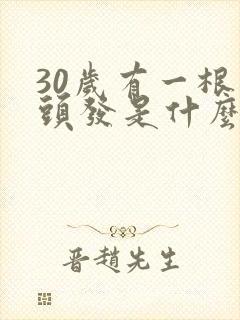 30歲有一根
頭發是什麼
晋趙先生